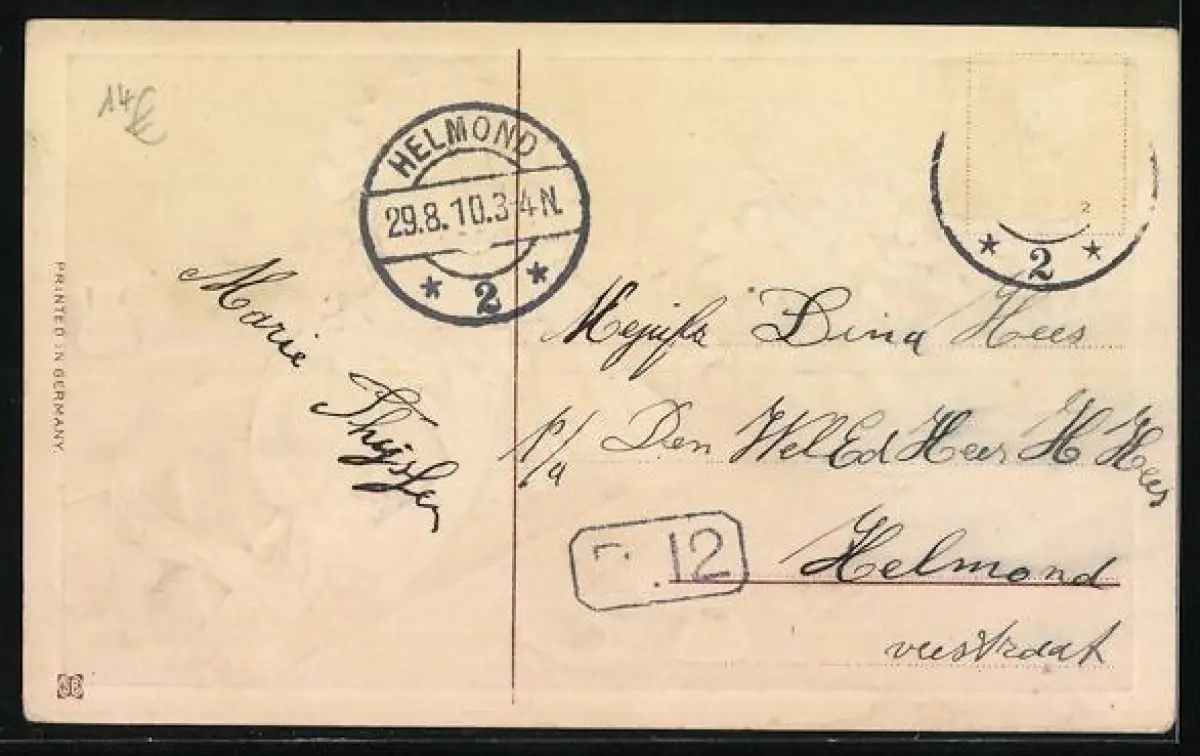 14
HELMOND
29.8.10.3-4N.
* 2 *
2
* 2 *
PRINTED IN GERMANY
Marie
Mejufr Dina Hees
p/a Den WelEd Heer H Hees
12
Helmond
veestraat